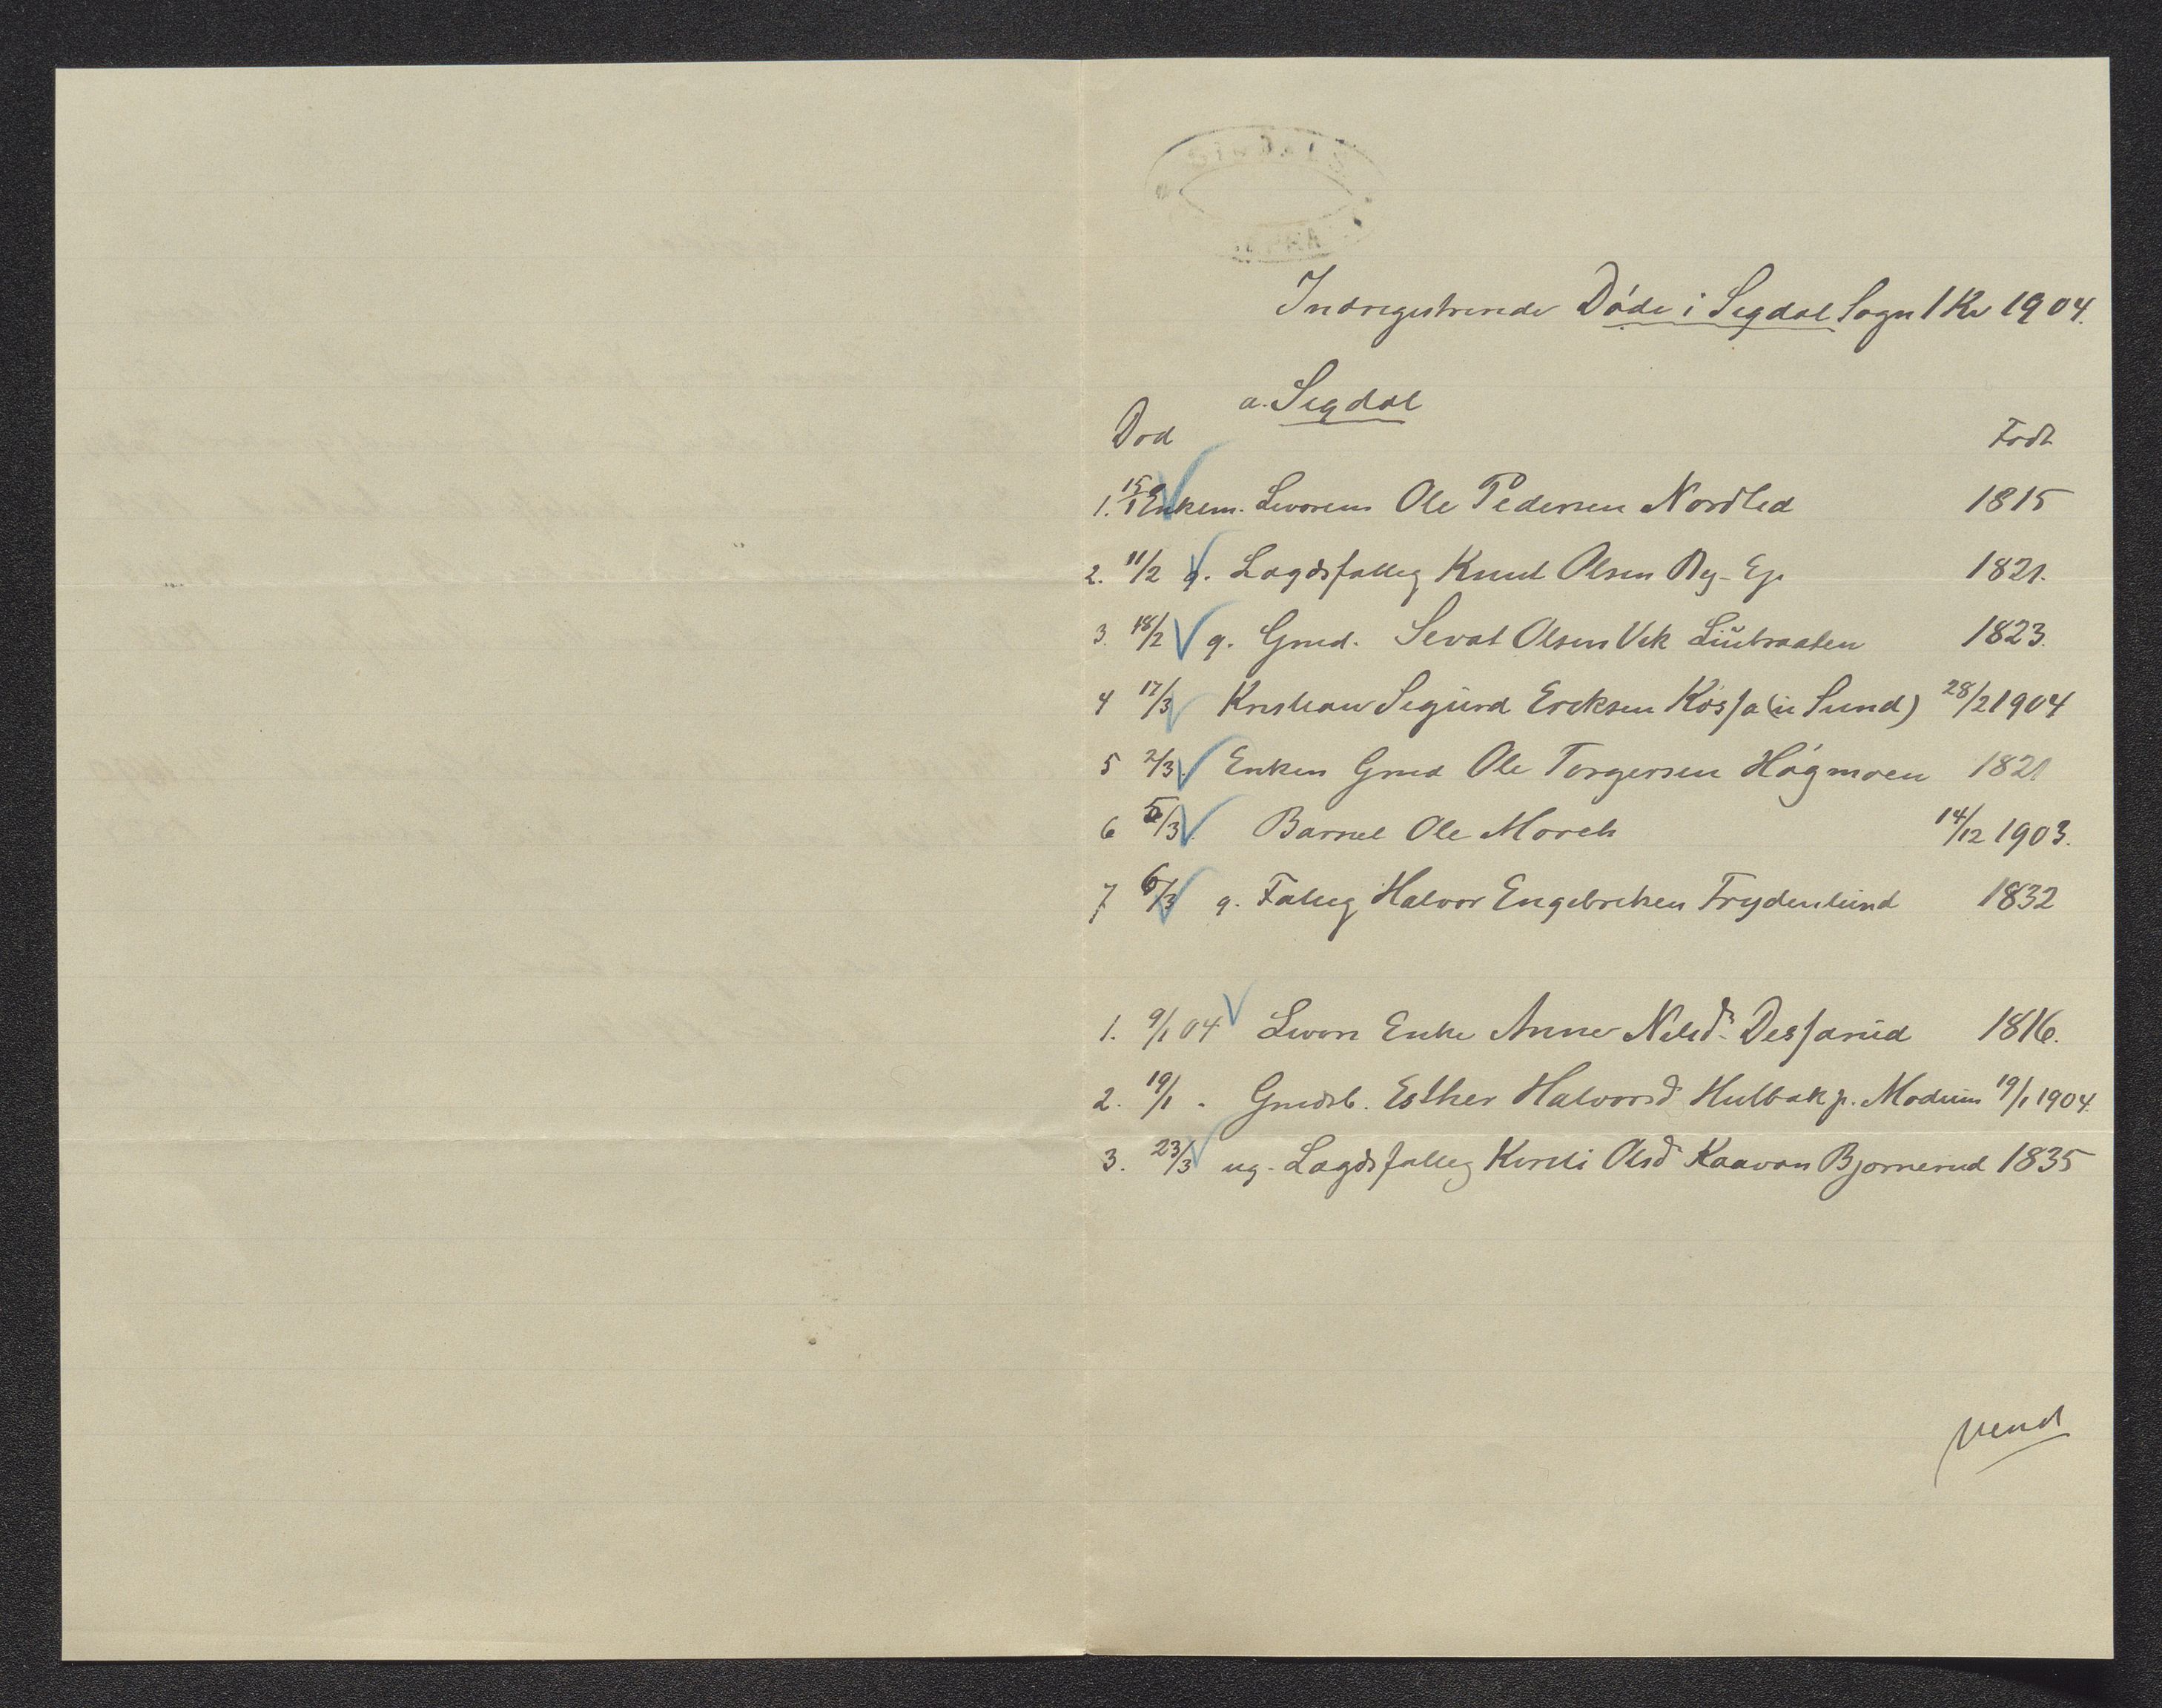 Indregistrerede Döde i Sigdal Sogn 1 Kv 1904.
a. Sigdal
Död Född
1. 15/1 Enkem. Livörens Ole Pedersen Nordlid 1815
2. 11/2 g. Lægdsfattig Knut Olsen By-Ej. 1821.
3. 18/2 g. Grmd. Sevat Olsen Vik Liubraaten 1823.
4 17/3 Kristian Sigurd Eriksen Kos/a (u Lund) 28/2 1904
5 2/3 Enkem Grmd Ole Torgersen Högmoen 1821
6 5/3 Barnet Ole Mörch 14/12 1903.
7 6/3 g. Fattig Halvor Engebretsen Frydenlund 1832
1. 9/1 04 Livörs Enke Anne Nilsd. 1816.
2. 19/1 - Grmdsb. Esther Halvorsd Hulbak p. Modum 19/1 1904.
3. 23/3 ug. Lægdsfattig Kirsti Olsd Kaavan Bjørnerud 1835
Vend